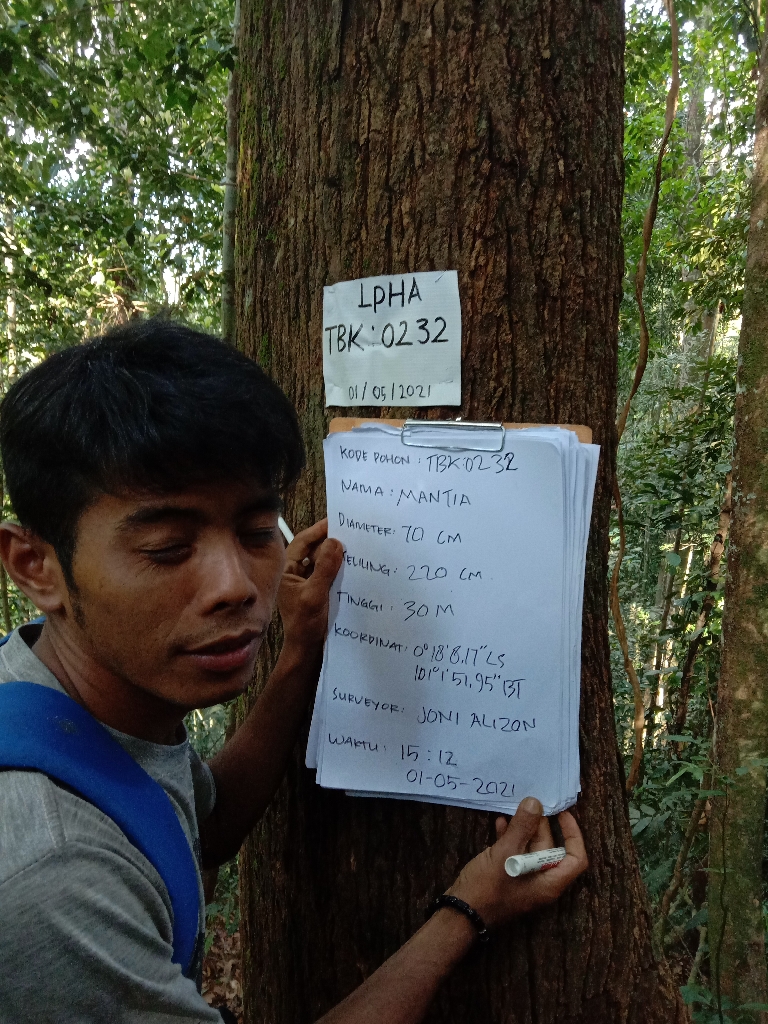 LPHA
TBK: 0232
01/05/2021
KODE POHON : TBK:0232
NAMA : MANTIA
DIAMETER: 70 CM
KELILING: 220 CM
TINGGI : 30 M
KOORDINAT: 0°18'8,17" LS
101°1'51,95" BT
SURVEYOR: JONI ALIZON
WAKTU: 15:12
01-05-2021